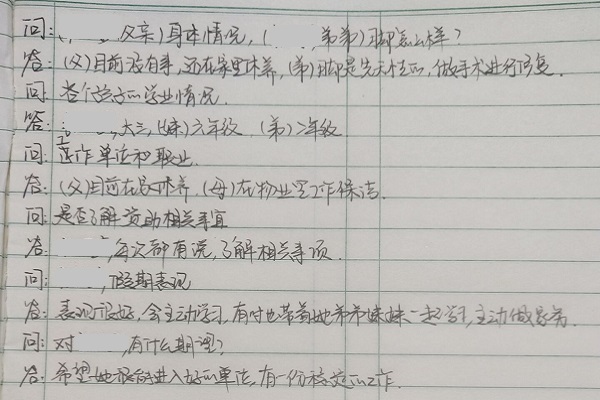 问: , 父亲)身体情况, ( , 弟弟)脚怎么样?
答: (父)目前没有事, 还在家里休养, (弟)脚是先天性的, 做手术进行修复.
问: 各个孩子的学业情况.
答: , 大三, (妹)六年级. (弟)二年级
问: 工作单位和职业.
答: (父)目前在家休养. (母)在物业工作保洁.
问: 是否了解资助相关事宜
答: , 每次都有说, 了解相关事项.
问: , 假期表现
答: 表现很好, 会主动学习, 有时也带着她弟弟妹妹一起学习, 主动做家务.
问: 对 , 有什么期望?
答: 希望她很能进入好的单位, 有一份稳定的工作.